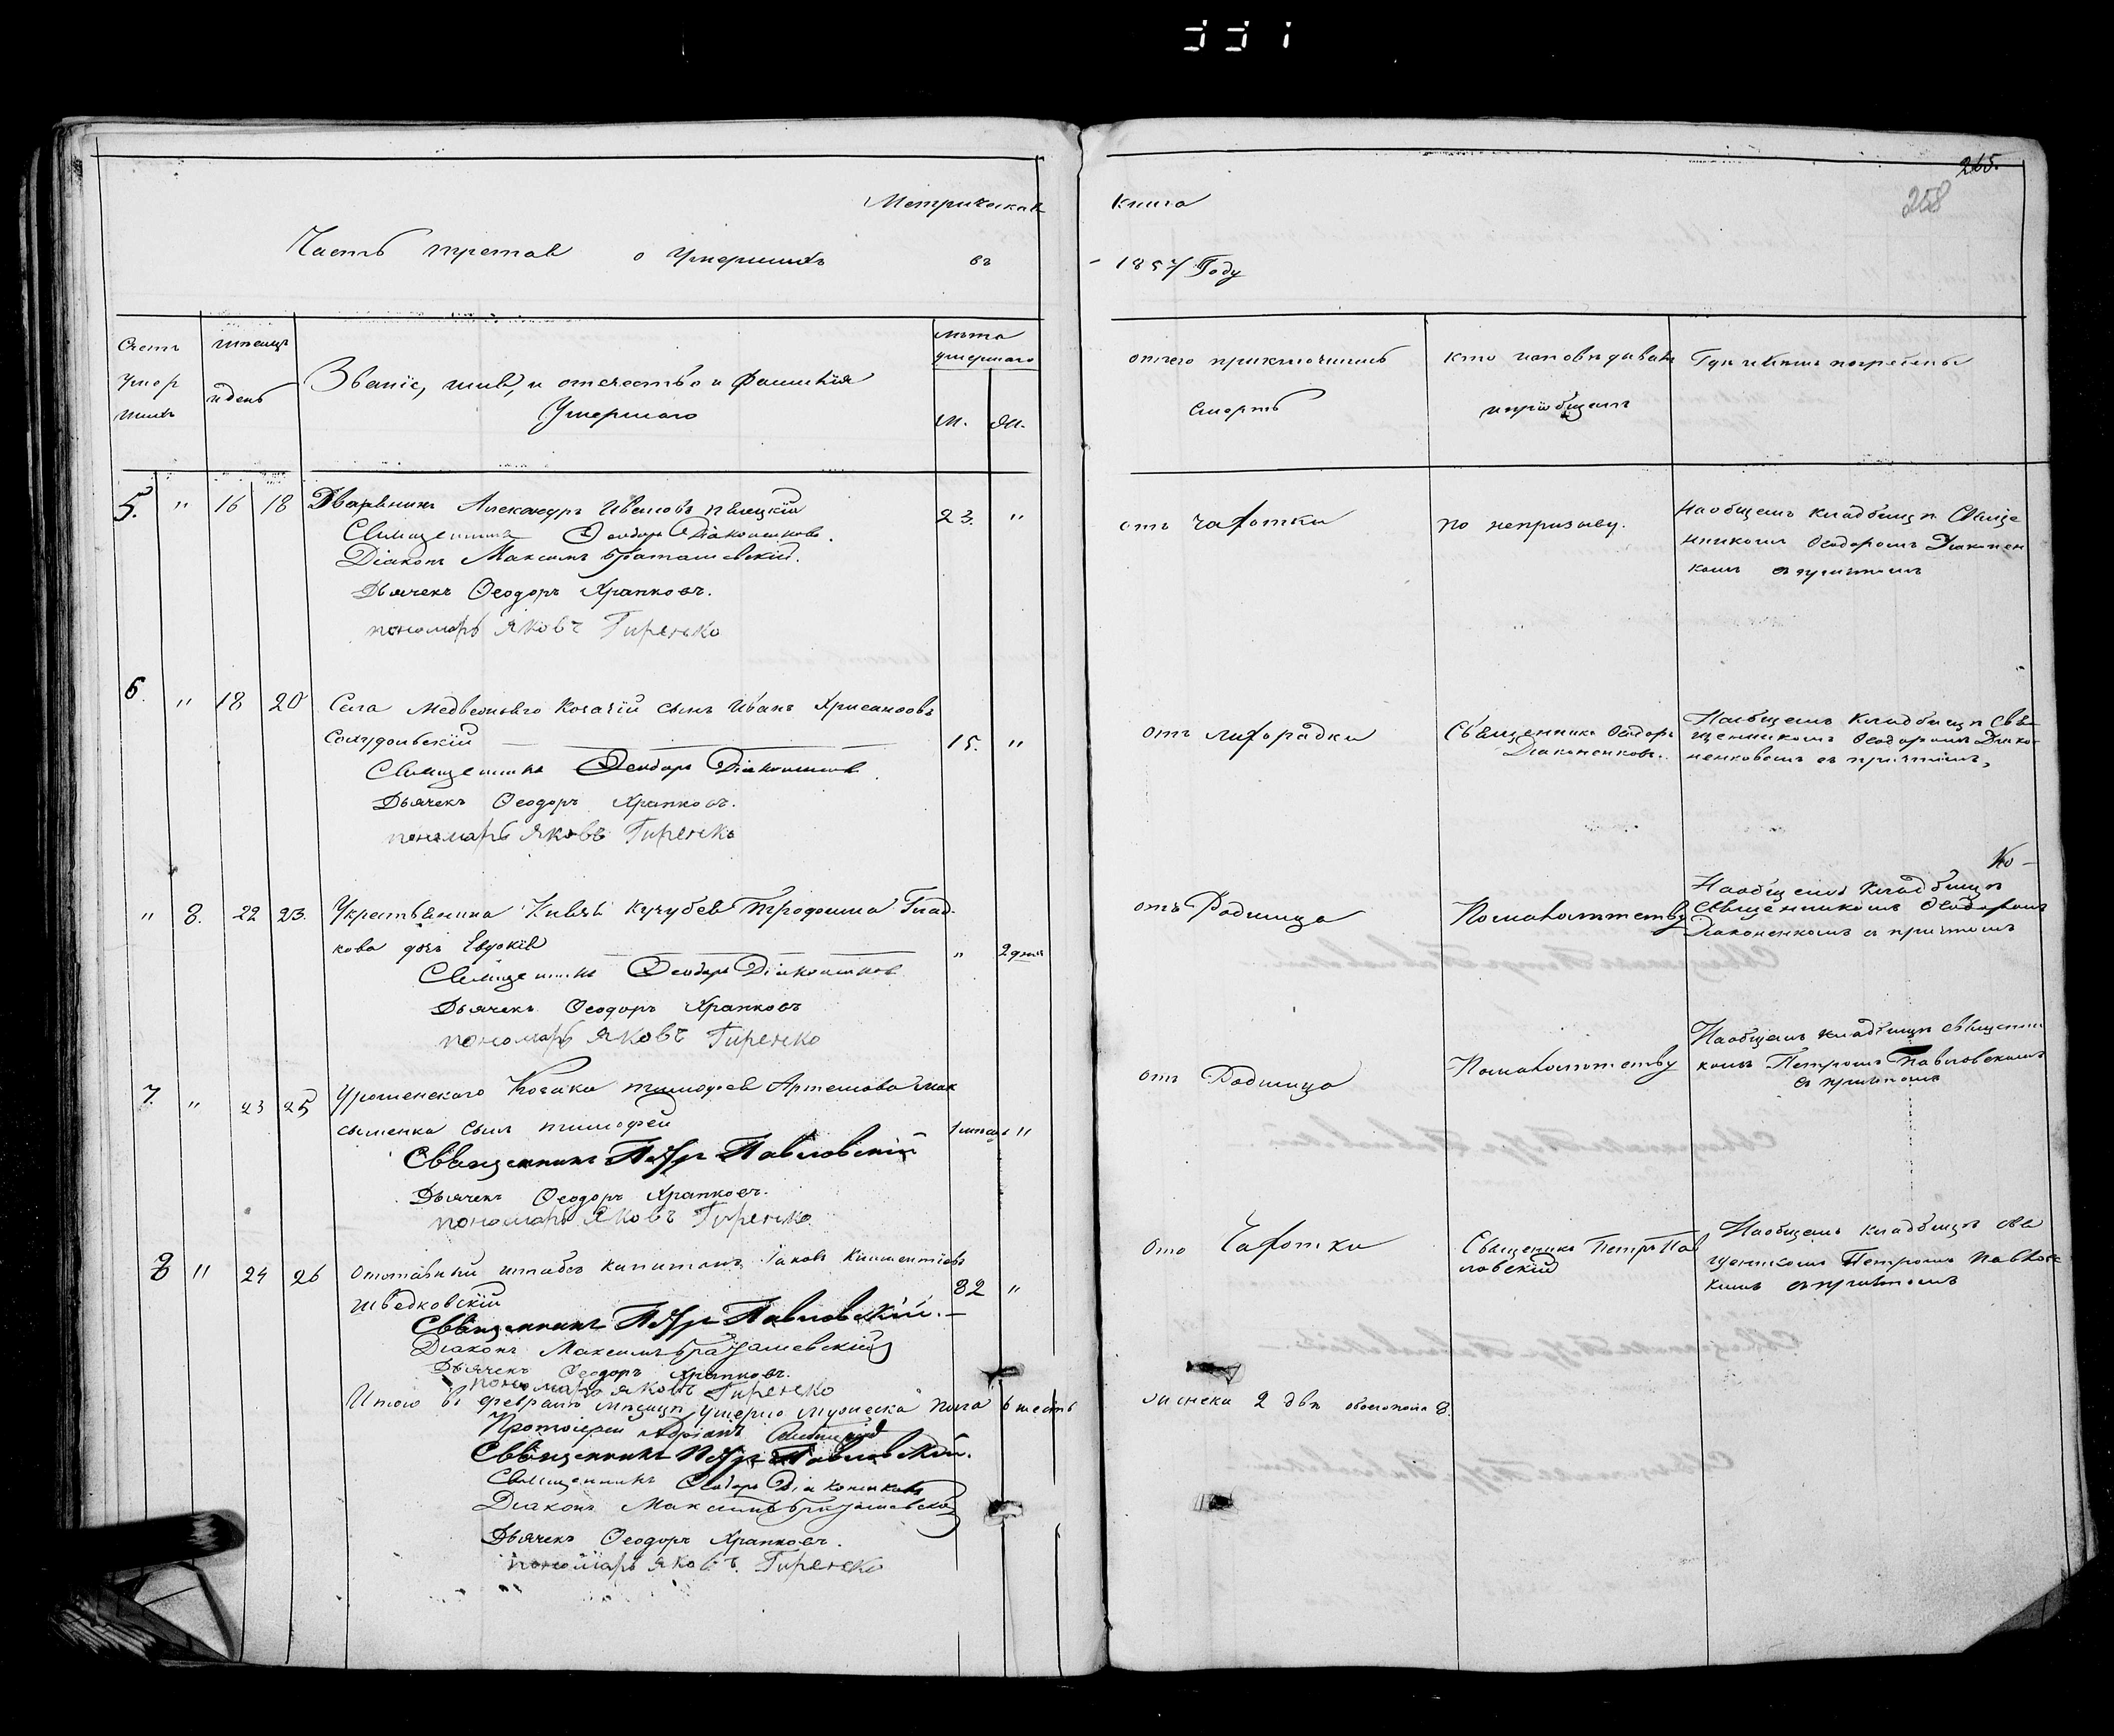 265.
258
Метрическая книга
Часть третая о Умершихъ въ 1857 Году
Счетъ умер шихъ
мѣсяцъ и день
Званіе, имя, и отечество и Фамилія
Умершаго
лѣта
умершаго
м. ж.
отчего приключилась
смерть
кто исповѣдывалъ
и пріобщалъ
Гдѣ и кѣмъ погребены
5. " 16 18 Дворянинъ Александръ Ивановъ 23. "
Священникъ Ѳеодоръ Діаконенковъ.
Діаконъ Максимъ Браташевскій.
Дьячекъ Ѳеодоръ Храпковъ.
пономарь Яковъ Гиренко
отъ чахотки
по непризыву.
На общемъ кладбищѣ Свяще
нникомъ Ѳеодоромъ Діаконен
комъ съ причтомъ
6. " 18 20 Села Медвежьяго Козачій сынъ Иванъ Хрисанѳовъ
15. "
Священникъ Ѳеодоръ Діаконенковъ
Дьячекъ Ѳеодоръ Храпковъ.
пономарь Яковъ Гиренко
отъ лихорадки
Священникъ Ѳеодоръ
Діаконенковъ.
На общемъ кладбищѣ Свя-
щенникомъ Ѳеодоромъ Діако-
ненковымъ съ причтомъ,
" 8. 22 23. Укрестьянина Князя Кучубея Трофима Глад-
кова дочь Евдокія " 2 дня
Священникъ Ѳеодоръ Діаконенков
Дьячекъ Ѳеодоръ Храпковъ
пономарь Яковъ Гиренко
отъ Родимца
Помалолетству
На общемъ кладбищѣ
Священникомъ Ѳеодоромъ
Діаконенкомъ съ причтомъ
7. " 23 25 Уроменскаго Козака Тимофея Артемова Мак
сыменка сынъ Тимофей 1 мѣсяц "
Священникъ Петръ Павловскій
Дьячекъ Ѳеодоръ Храпковъ.
пономарь Яковъ Гиренко
отъ Родимца
Помалолетству
На общемъ кладбищѣ священни
комъ Петромъ Павловскимъ
съ причтомъ
8 " 24 26 Отставный штабсъ капитанъ Іаковъ Климентіевъ
Шведковскій 82 "
Священникъ Петръ Павловскій.
Діаконъ Максимъ Браташевскій
Дьячекъ Ѳеодоръ Храпковъ.
пономарь Яковъ Гиренко
Ото Чахотки
Священикъ Петръ Пав
ловскій
На общемъ кладбищѣ свя
щеникомъ Петромъ Павловс
кимъ съ причтомъ
Итого въ февралѣ мѣсяцѣ умерло мужеска пола 6 шесть женска 2 двѣ обоего пола 8.
Протоіерей Адріанъ
Священникъ Петръ Павловскій.
Священникъ Ѳеодоръ Діаконенковъ
Діаконъ Максимъ Браташевскій
Дьячекъ Ѳеодоръ Храпковъ.
пономарь Яковъ Гиренко